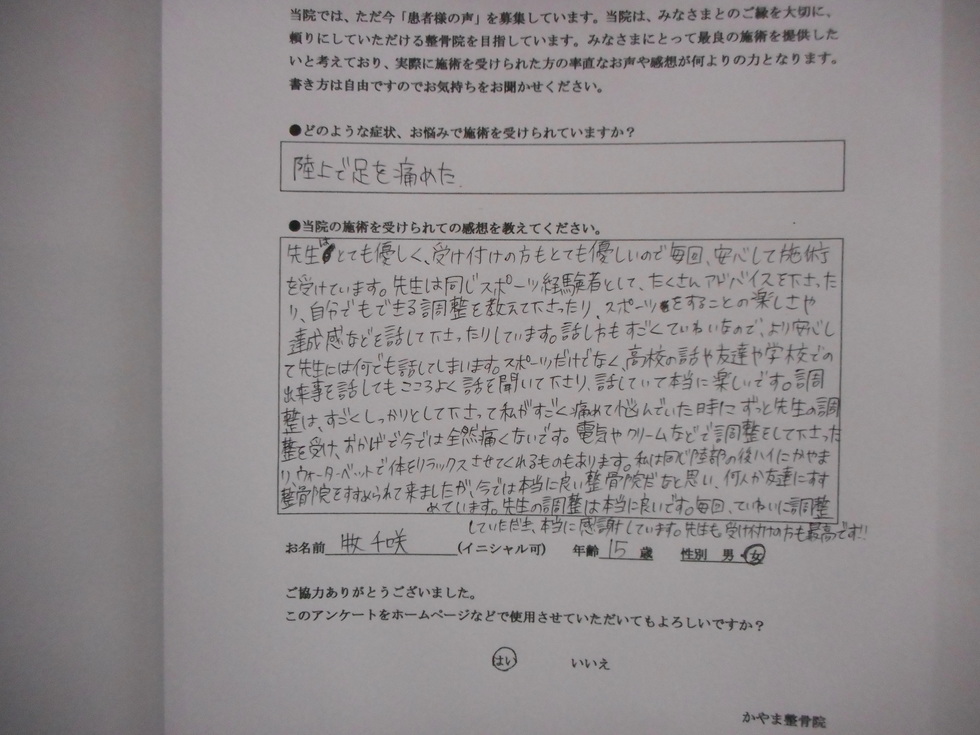 当院では、ただ今「患者様の声」を募集しています。当院は、みなさまとのご縁を大切に、
頼りにしていただける整骨院を目指しています。みなさまにとって最良の施術を提供した
いと考えており、実際に施術を受けられた方の率直なお声や感想が何よりの力となります。
書き方は自由ですのでお気持ちをお聞かせください。
●どのような症状、お悩みで施術を受けられていますか？
陸上で足を痛めた.
●当院の施術を受けられての感想を教えてください。
先生はとても優しく、受け付けの方もとても優しいので毎回、安心して施術
を受けています。先生は同じスポーツ経験者として、たくさんアドバイスを下さった
り、自分でもできる調整を教えて下さったり、スポーツをすることの楽しさや
達成感などを話して下さったりしています。話し方もすごくていねいなので、より安心し
て先生には何でも話してしまいます。スポーツだけでなく、高校の話や友達や学校での
出来事を話してもこころよく話を聞いて下さり、話していて本当に楽しいです。調
整は、すごくしっかりとして下さって私がすごく痛めて悩んでいた時にずっと先生の調
整を受け、おかげで今では全然痛くないです。電気やクリームなどで調整をして下さった
り、ウォーターベットで体をリラックスさせてくれるものもあります。私は同じ陸部の後ハイにかやま
整骨院をすすめられて来ましたが、今では本当に良い整骨院だなと思い、何人か友達にすす
めています。先生の調整は本当に良いです。毎回、ていねいに調整
していただき、本当に感謝しています。先生も受け付けの方も最高です!!
お名前 牧 千咲 (イニシャル可) 年齢 15 歳 性別 男・女
ご協力ありがとうございました。
このアンケートをホームページなどで使用させていただいてもよろしいですか？
はい いいえ
かやま整骨院